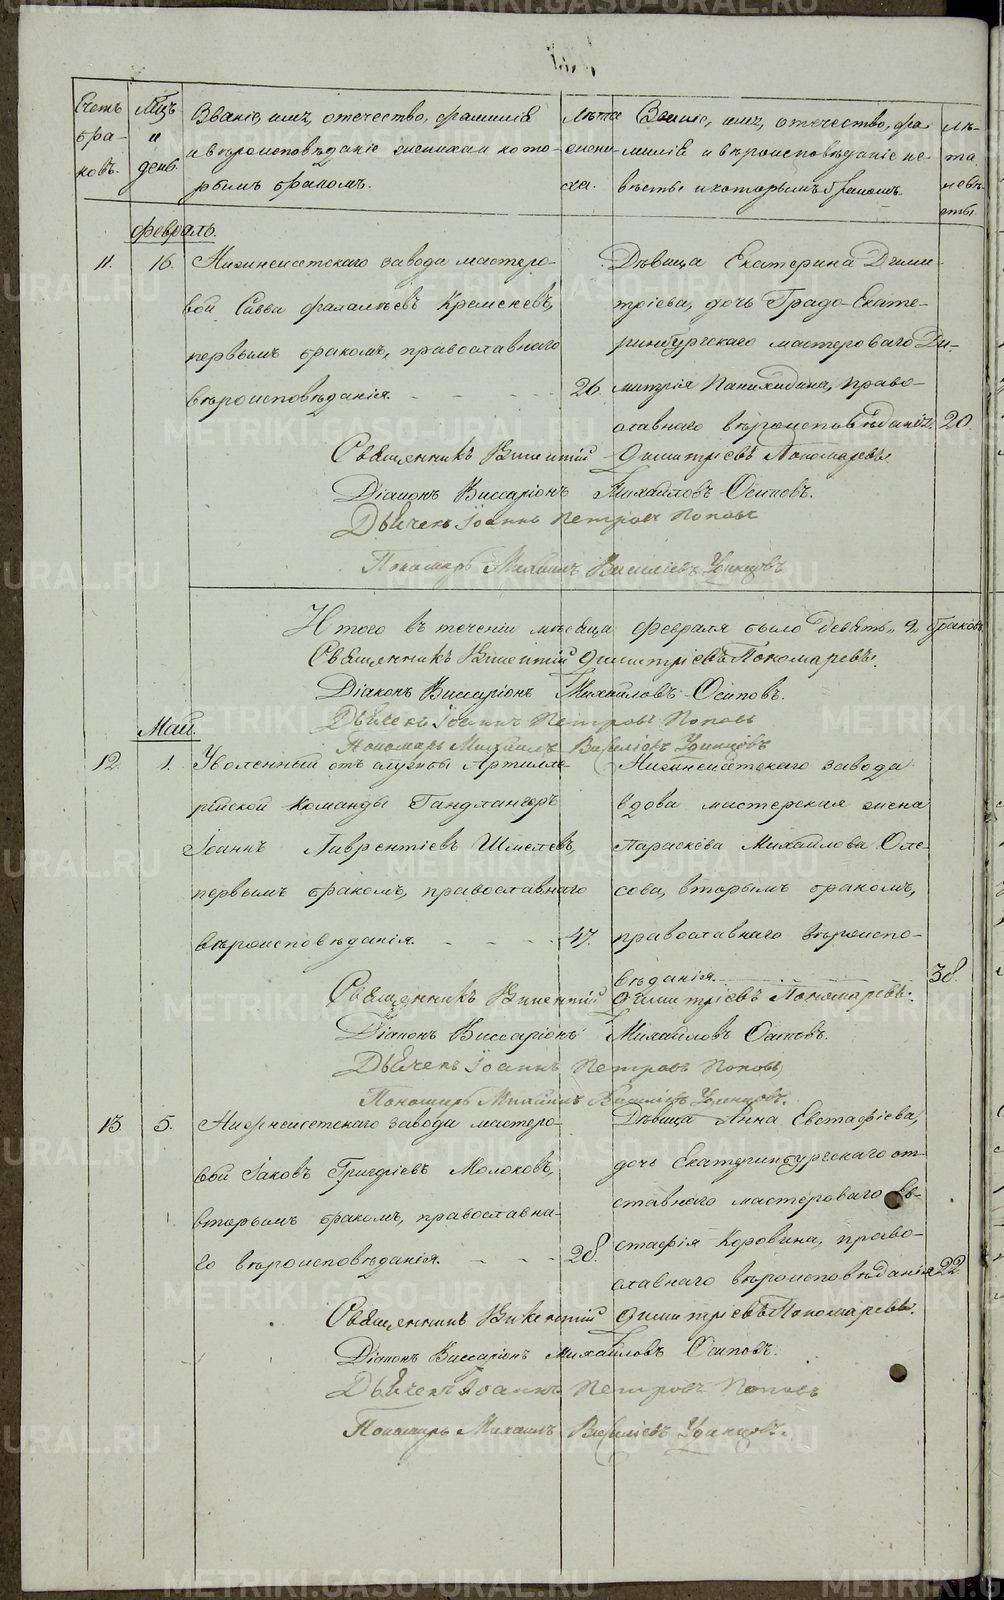 Счетъ браковъ.
Мцъ и день.
Званіе, имя, отечество, фамилія и вѣроисповѣданіе жениха и которымъ бракомъ.
Лѣта жениха.
Званіе, имя, отечество, фамилія и вѣроисповѣданіе невѣсты и которымъ бракомъ.
Лѣта невѣсты.
Февраль.
11. 16. Нижнеисетскаго завода мастеро-
вой Савва Фаталѣевъ Кременевъ,
первымъ бракомъ, православнаго
вѣроисповѣданія. 26.
Дѣвица Екатерина Дими-
тріева, дочь Градо-Екате-
ринбургскаго мастероваго Ди-
митрія Панихидина, право-
славнаго вѣроисповѣданія. 20
Священникъ Викентій Димитріевъ Пономаревъ.
Діаконъ Виссаріонъ Михайловъ Осиповъ.
Дьячекъ Іоаннъ Петровъ Поповъ
Пономарь Михаилъ Василіевъ Удинцовъ
Итого въ теченіи мѣсяца февраля было девять „9„ браковъ
Священникъ Викентій Димитріевъ Пономаревъ.
Діаконъ Виссаріонъ Михайловъ Осиповъ.
Дьячекъ Іоаннъ Петровъ Поповъ
Пономарь Михаилъ Василіевъ Удинцовъ
Май.
12. 1. Уволенный отъ службы Артилле-
рійской команды Гандлангеръ
Іоаннъ Лаврентіевъ Шмелевъ,
первымъ бракомъ, православнаго
вѣроисповѣданія. 47.
Нижнеисетскаго завода
вдова мастерская жена
Параскева Михайлова Оле-
сова, вторымъ бракомъ,
православнаго вѣроиспо-
вѣданія. 38.
Священникъ Викентій Димитріевъ Пономаревъ.
Діаконъ Виссаріонъ Михайловъ Осиповъ.
Дьячекъ Іоаннъ Петровъ Поповъ
Пономарь Михаилъ Василіевъ Удинцовъ.
13 5. Нижнеисетскаго завода мастеро-
вой Іаковъ Григоріевъ Молоковъ,
вторымъ бракомъ, православна-
го вѣроисповѣданія. 28.
Дѣвица Анна Евстафіева,
дочь Екатеринбургскаго от-
ставнаго мастероваго Ев-
стафія Коровина, право-
славнаго вѣроисповѣданія 22
Священникъ Викентій Димитріевъ Пономаревъ.
Діаконъ Виссаріонъ Михайловъ Осиповъ.
Дьячекъ Іоаннъ Петровъ Поповъ
Пономарь Михаилъ Василіевъ Удинцовъ.
METRIKI.GASO-URAL.RU